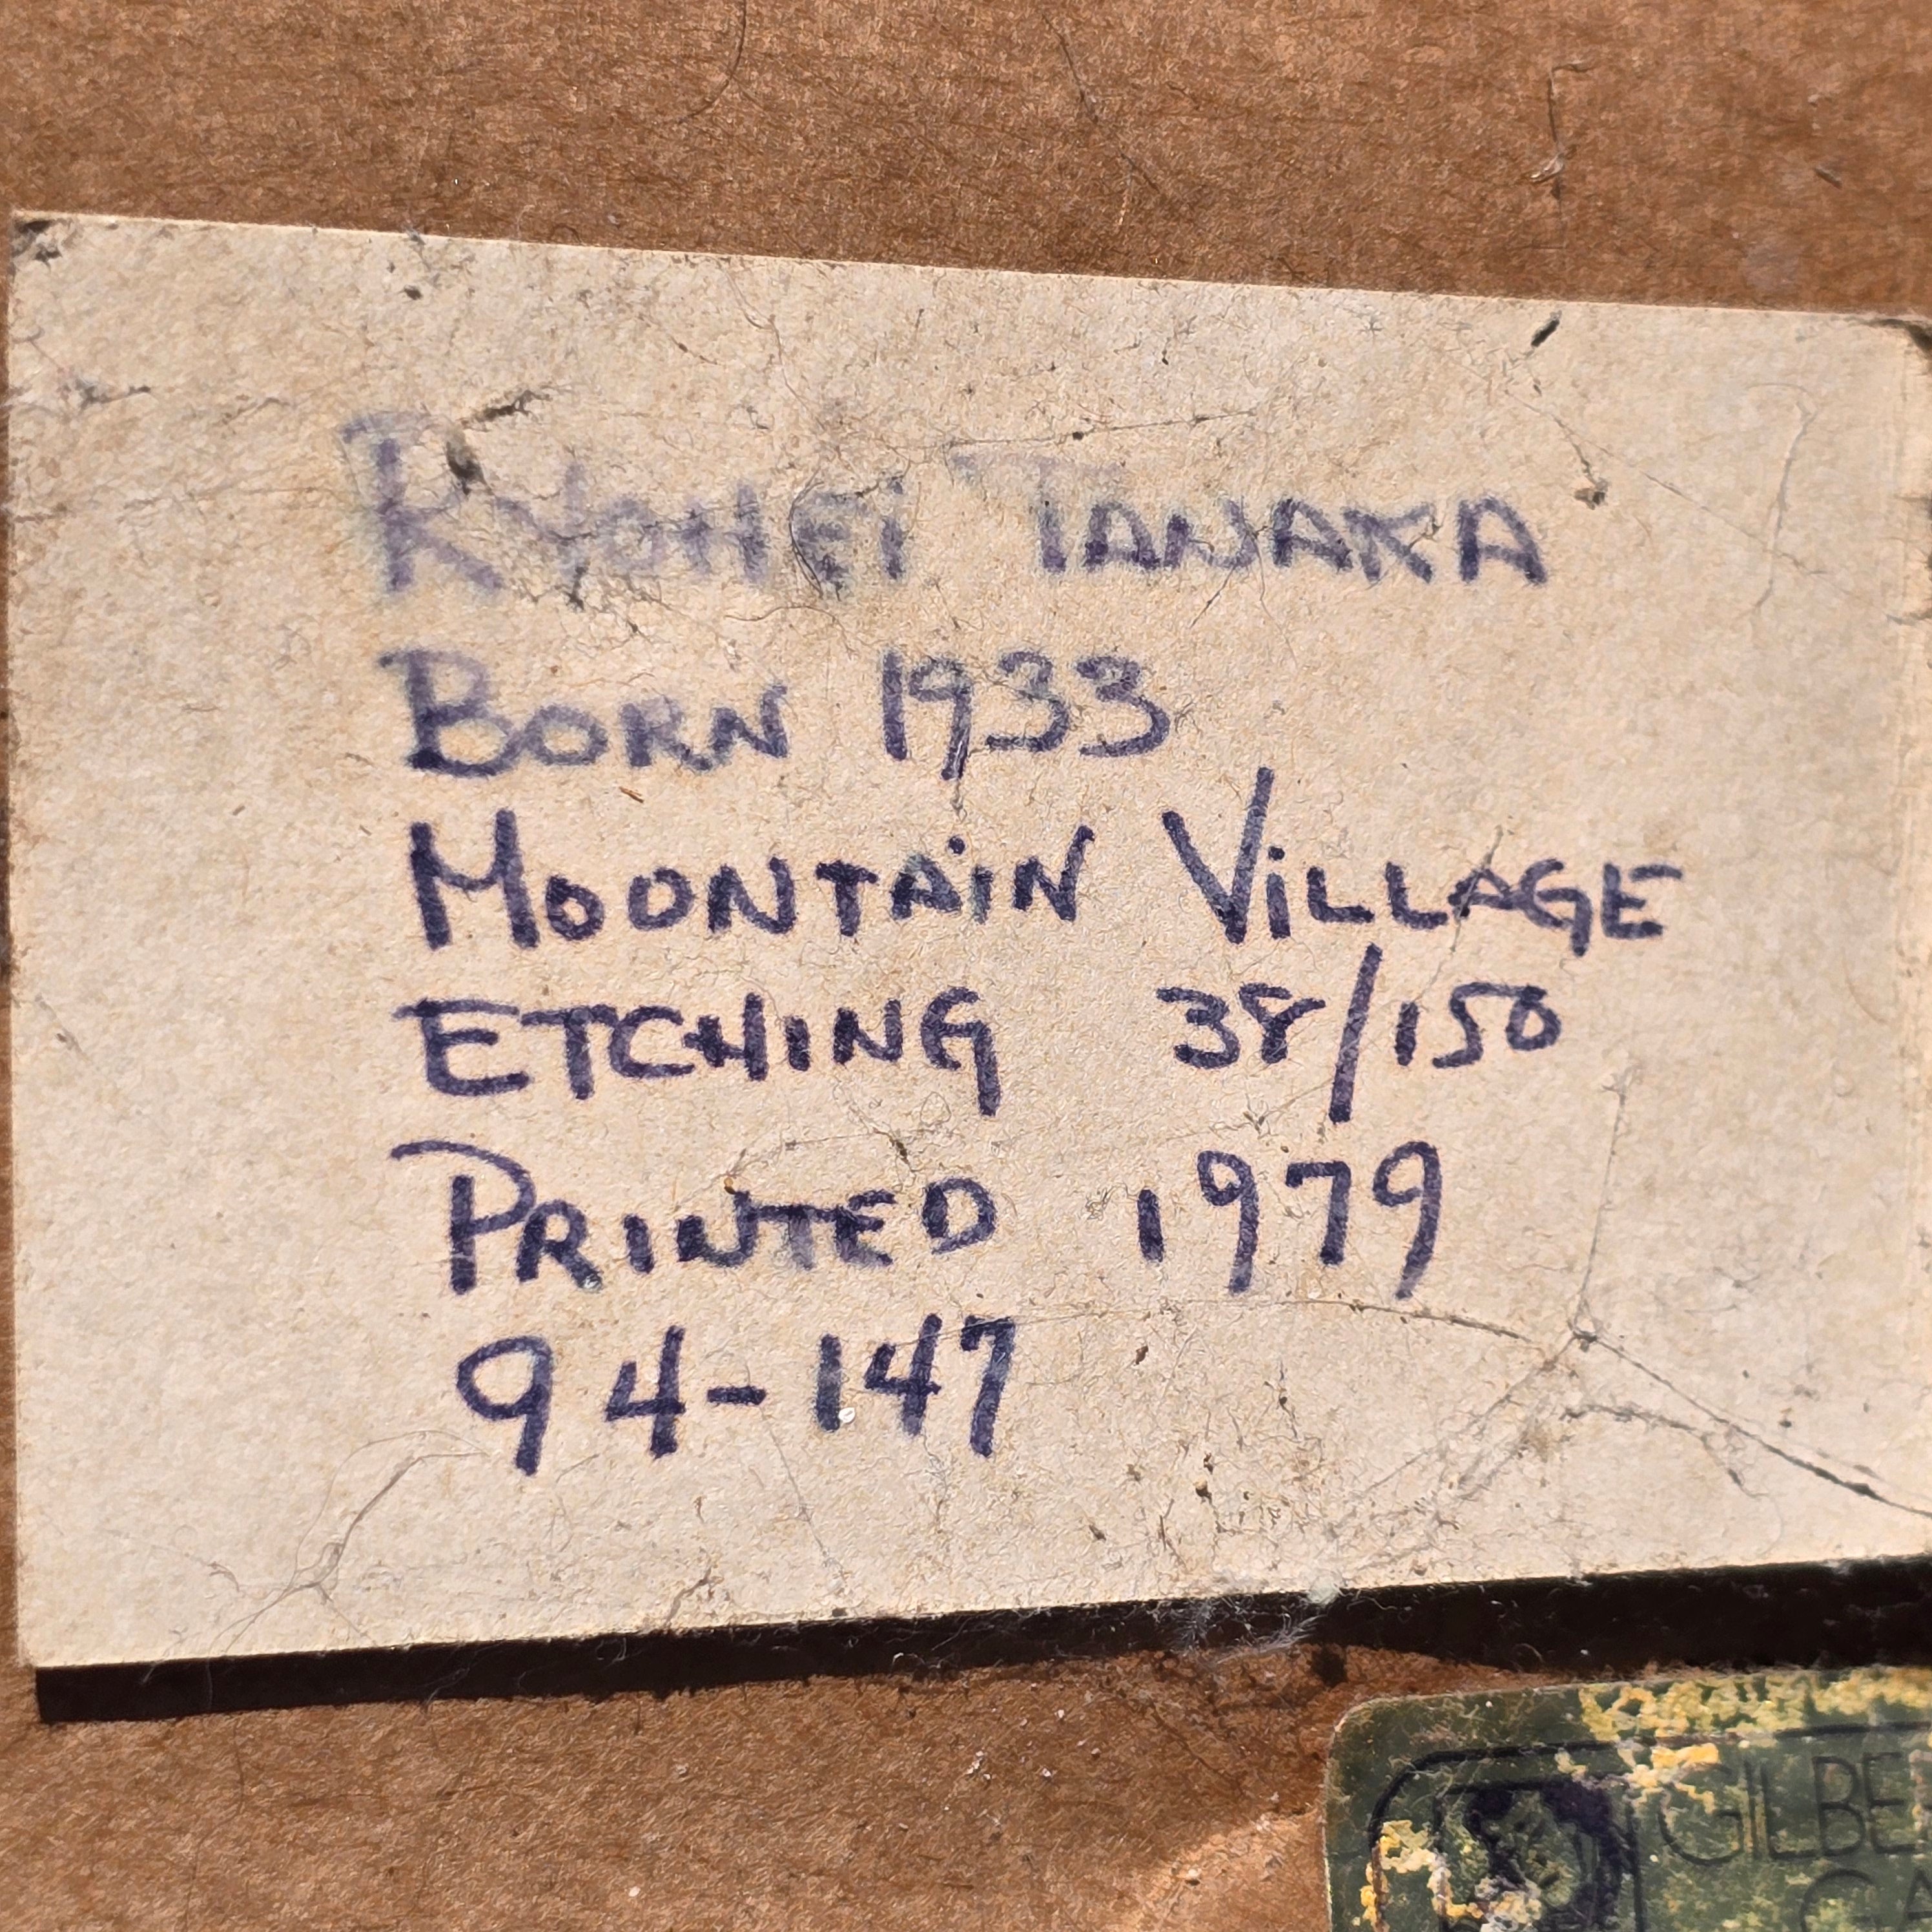 RYOHEI TANAKA
BORN 1933
MOUNTAIN VILLAGE
ETCHING 38/150
PRINTED 1979
94-147